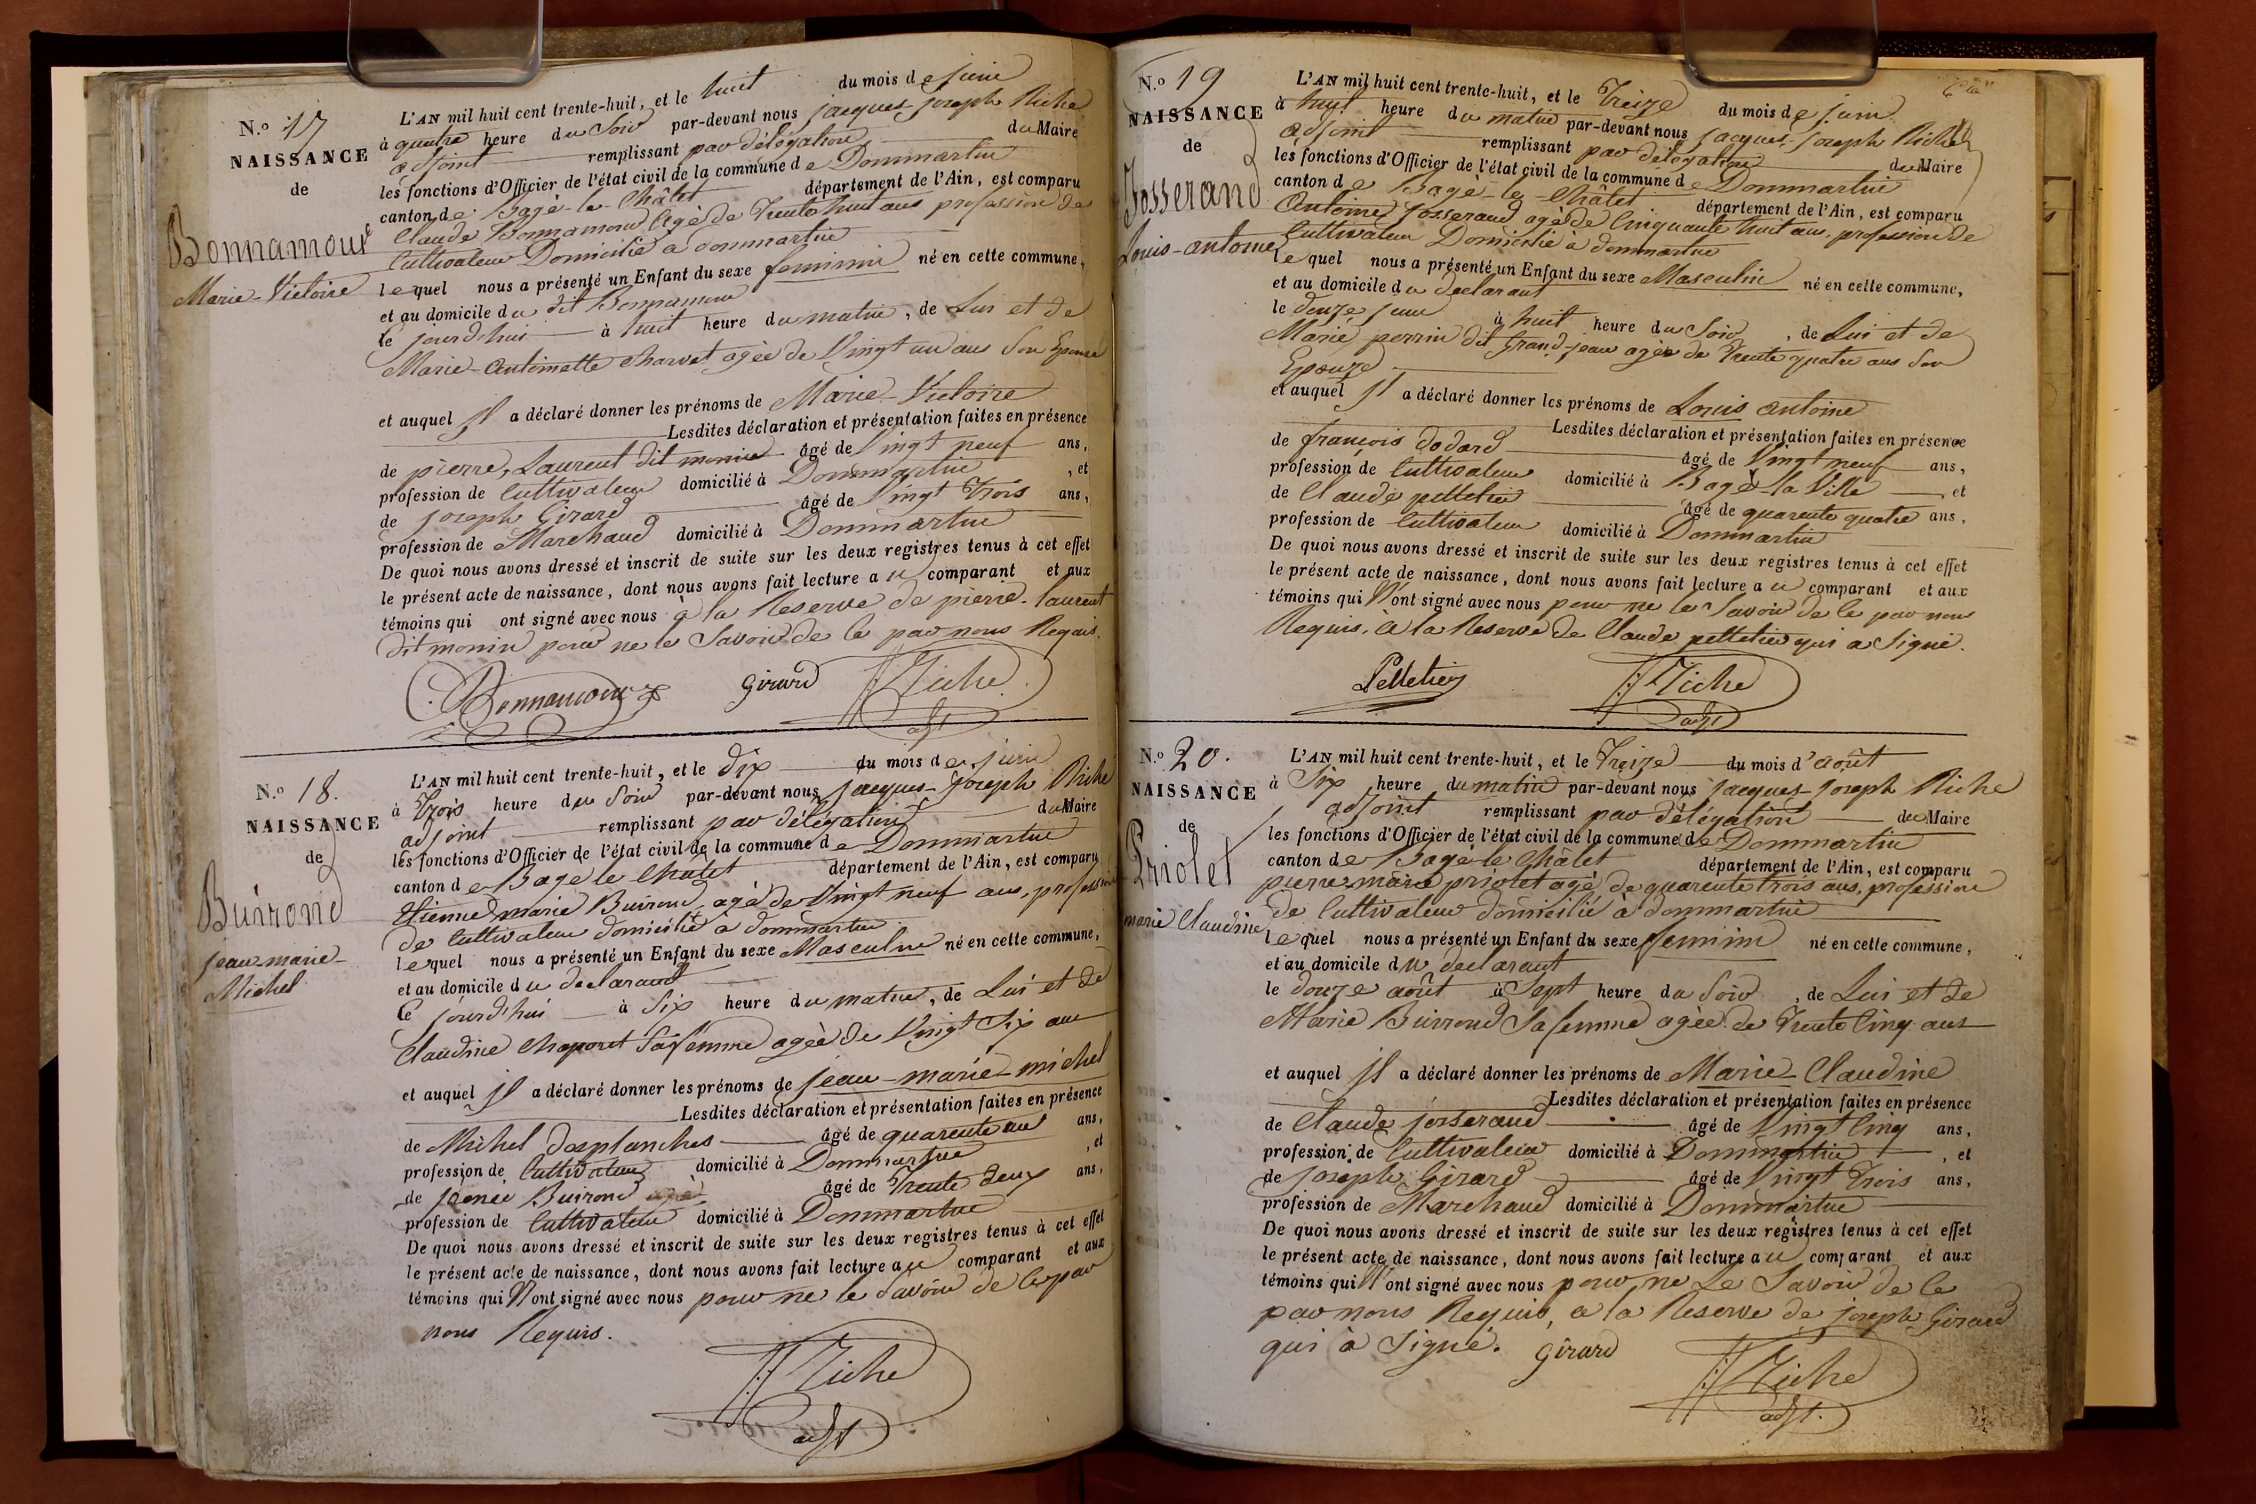 N.º 17
NAISSANCE
de
Bonnamour
Marie-Victoire
L'AN mil huit cent trente-huit, et le huit du mois de juin
à quatre heure du soir par-devant nous jacques joseph Riche
adjoint remplissant par délégation du Maire
les fonctions d'Officier de l'état civil de la commune de Dommartin
canton de Bagé-le-Châtel département de l'Ain, est comparu
Claude Bonnamour agé de Trente huit ans profession de
Cultivateur Domicilié à dommartin
lequel nous a présenté un Enfant du sexe feminin né en cette commune,
et au domicile du dit Bonnamour
le jourd'hui à huit heure du matin, de Lui et de
Marie-Antoinette Charvet agée de Vingt un ans Son Epouse
et auquel il a déclaré donner les prénoms de Marie-Victoire
Lesdites déclaration et présentation faites en présence
de pierre, Laurent dit monin âgé de Vingt neuf ans,
profession de Cultivateur domicilié à Dommartin, et
de joseph Girard âgé de Vingt Trois ans,
profession de Marchand domicilié à Dommartin
De quoi nous avons dressé et inscrit de suite sur les deux registres tenus à cet effet
le présent acte de naissance, dont nous avons fait lecture au comparant et aux
témoins qui ont signé avec nous à la Reserve de pierre-laurent
dit monin pour ne le Savoir de ce par nous Requis.
Bonnamour Girard Riche
adjt
N.º 18.
NAISSANCE
de
Buirond
jean-marie-
Michel
L'AN mil huit cent trente-huit, et le dix du mois de juin
à Trois heure du Soir par-devant nous jacques-joseph Riche
adjoint remplissant par délégation du Maire
les fonctions d'Officier de l'état civil de la commune de Dommartin
canton de Bage le Châtel département de l'Ain, est comparu
Etienne marie Buirond, agé de Vingt neuf ans, profession
de Cultivateur domicilié à dommartin
lequel nous a présenté un Enfant du sexe Masculin né en cette commune,
et au domicile du declarant
le jourd'hui à Six heure du matin, de Lui et de
Claudine Chaponet Sa femme agée de Vingt Six ans
et auquel il a déclaré donner les prénoms de jean-marie-michel
Lesdites déclaration et présentation faites en présence
de Michel Desplanches âgé de quarente un ans,
profession de Cultivateur domicilié à Dommartin, et
de Buirond âgé de Trente deux ans,
profession de Cultivateur domicilié à Dommartin
De quoi nous avons dressé et inscrit de suite sur les deux registres tenus à cet effet
le présent acte de naissance, dont nous avons fait lecture au comparant et aux
témoins qui N'ont signé avec nous pour ne le Savoir de ce par
nous Requis.
Riche
adjt
N.º 19
NAISSANCE
de
Josserand
Louis-antoine
L'AN mil huit cent trente-huit, et le Treize du mois de juin
à huit heure du matin par-devant nous jacques-joseph Riche
adjoint remplissant par délégation du Maire
les fonctions d'Officier de l'état civil de la commune de Dommartin
canton de Bagé-le-Châtel département de l'Ain, est comparu
Antoine Josserand agé de Cinquante huit ans, profession de
Cultivateur Domicilié à dommartin
lequel nous a présenté un Enfant du sexe Masculin né en cette commune,
et au domicile du declarant
le douze juin à huit heure du Soir, de Lui et de
Marie perrin dit Grand-jean agée de Trente quatre ans Son
Epouze
et auquel il a déclaré donner les prénoms de Louis antoine
Lesdites déclaration et présentation faites en présence
de françois dodard âgé de Vingt neuf ans,
profession de Cultivateur domicilié à Bagé la Ville et
de Claude pelletier âgé de quarente quatre ans,
profession de Cultivateur domicilié à Dommartin
De quoi nous avons dressé et inscrit de suite sur les deux registres tenus à cet effet
le présent acte de naissance, dont nous avons fait lecture au comparant et aux
témoins qui N'ont signé avec nous pour ne le Savoir de ce par nous
Requis. à la Reserve de Claude pelletier qui a Signé.
Pelletier Riche
adjt
N.º 20.
NAISSANCE
de
Priolet
marie Claudine
L'AN mil huit cent trente-huit, et le Treize du mois d'août
à Six heure du matin par-devant nous jacques-joseph Riche
adjoint remplissant par délégation du Maire
les fonctions d'Officier de l'état civil de la commune de Dommartin
canton de Bagé le Châtel département de l'Ain, est comparu
pierre-marie priolet agé de quarente trois ans, profession
de Cultivateur domicilié à dommartin
lequel nous a présenté un Enfant du sexe feminin né en cette commune,
et au domicile du declarant
le douze août à Sept heure du Soir, de Lui et de
Marie Buirond Sa femme agée de Trente Cinq ans
et auquel il a déclaré donner les prénoms de Marie-Claudine
Lesdites déclaration et présentation faites en présence
de Claude josserand âgé de Vingt Cinq ans,
profession de Cultivateur domicilié à Dommartin, et
de joseph Girard âgé de Vingt Trois ans,
profession de Marchand domicilié à Dommartin
De quoi nous avons dressé et inscrit de suite sur les deux registres tenus à cet effet
le présent acte de naissance, dont nous avons fait lecture au comparant et aux
témoins qui N'ont signé avec nous pour ne Le Savoir de ce
par nous Requis, a la Reserve de joseph Girard
qui à Signé. Girard Riche
adjt.